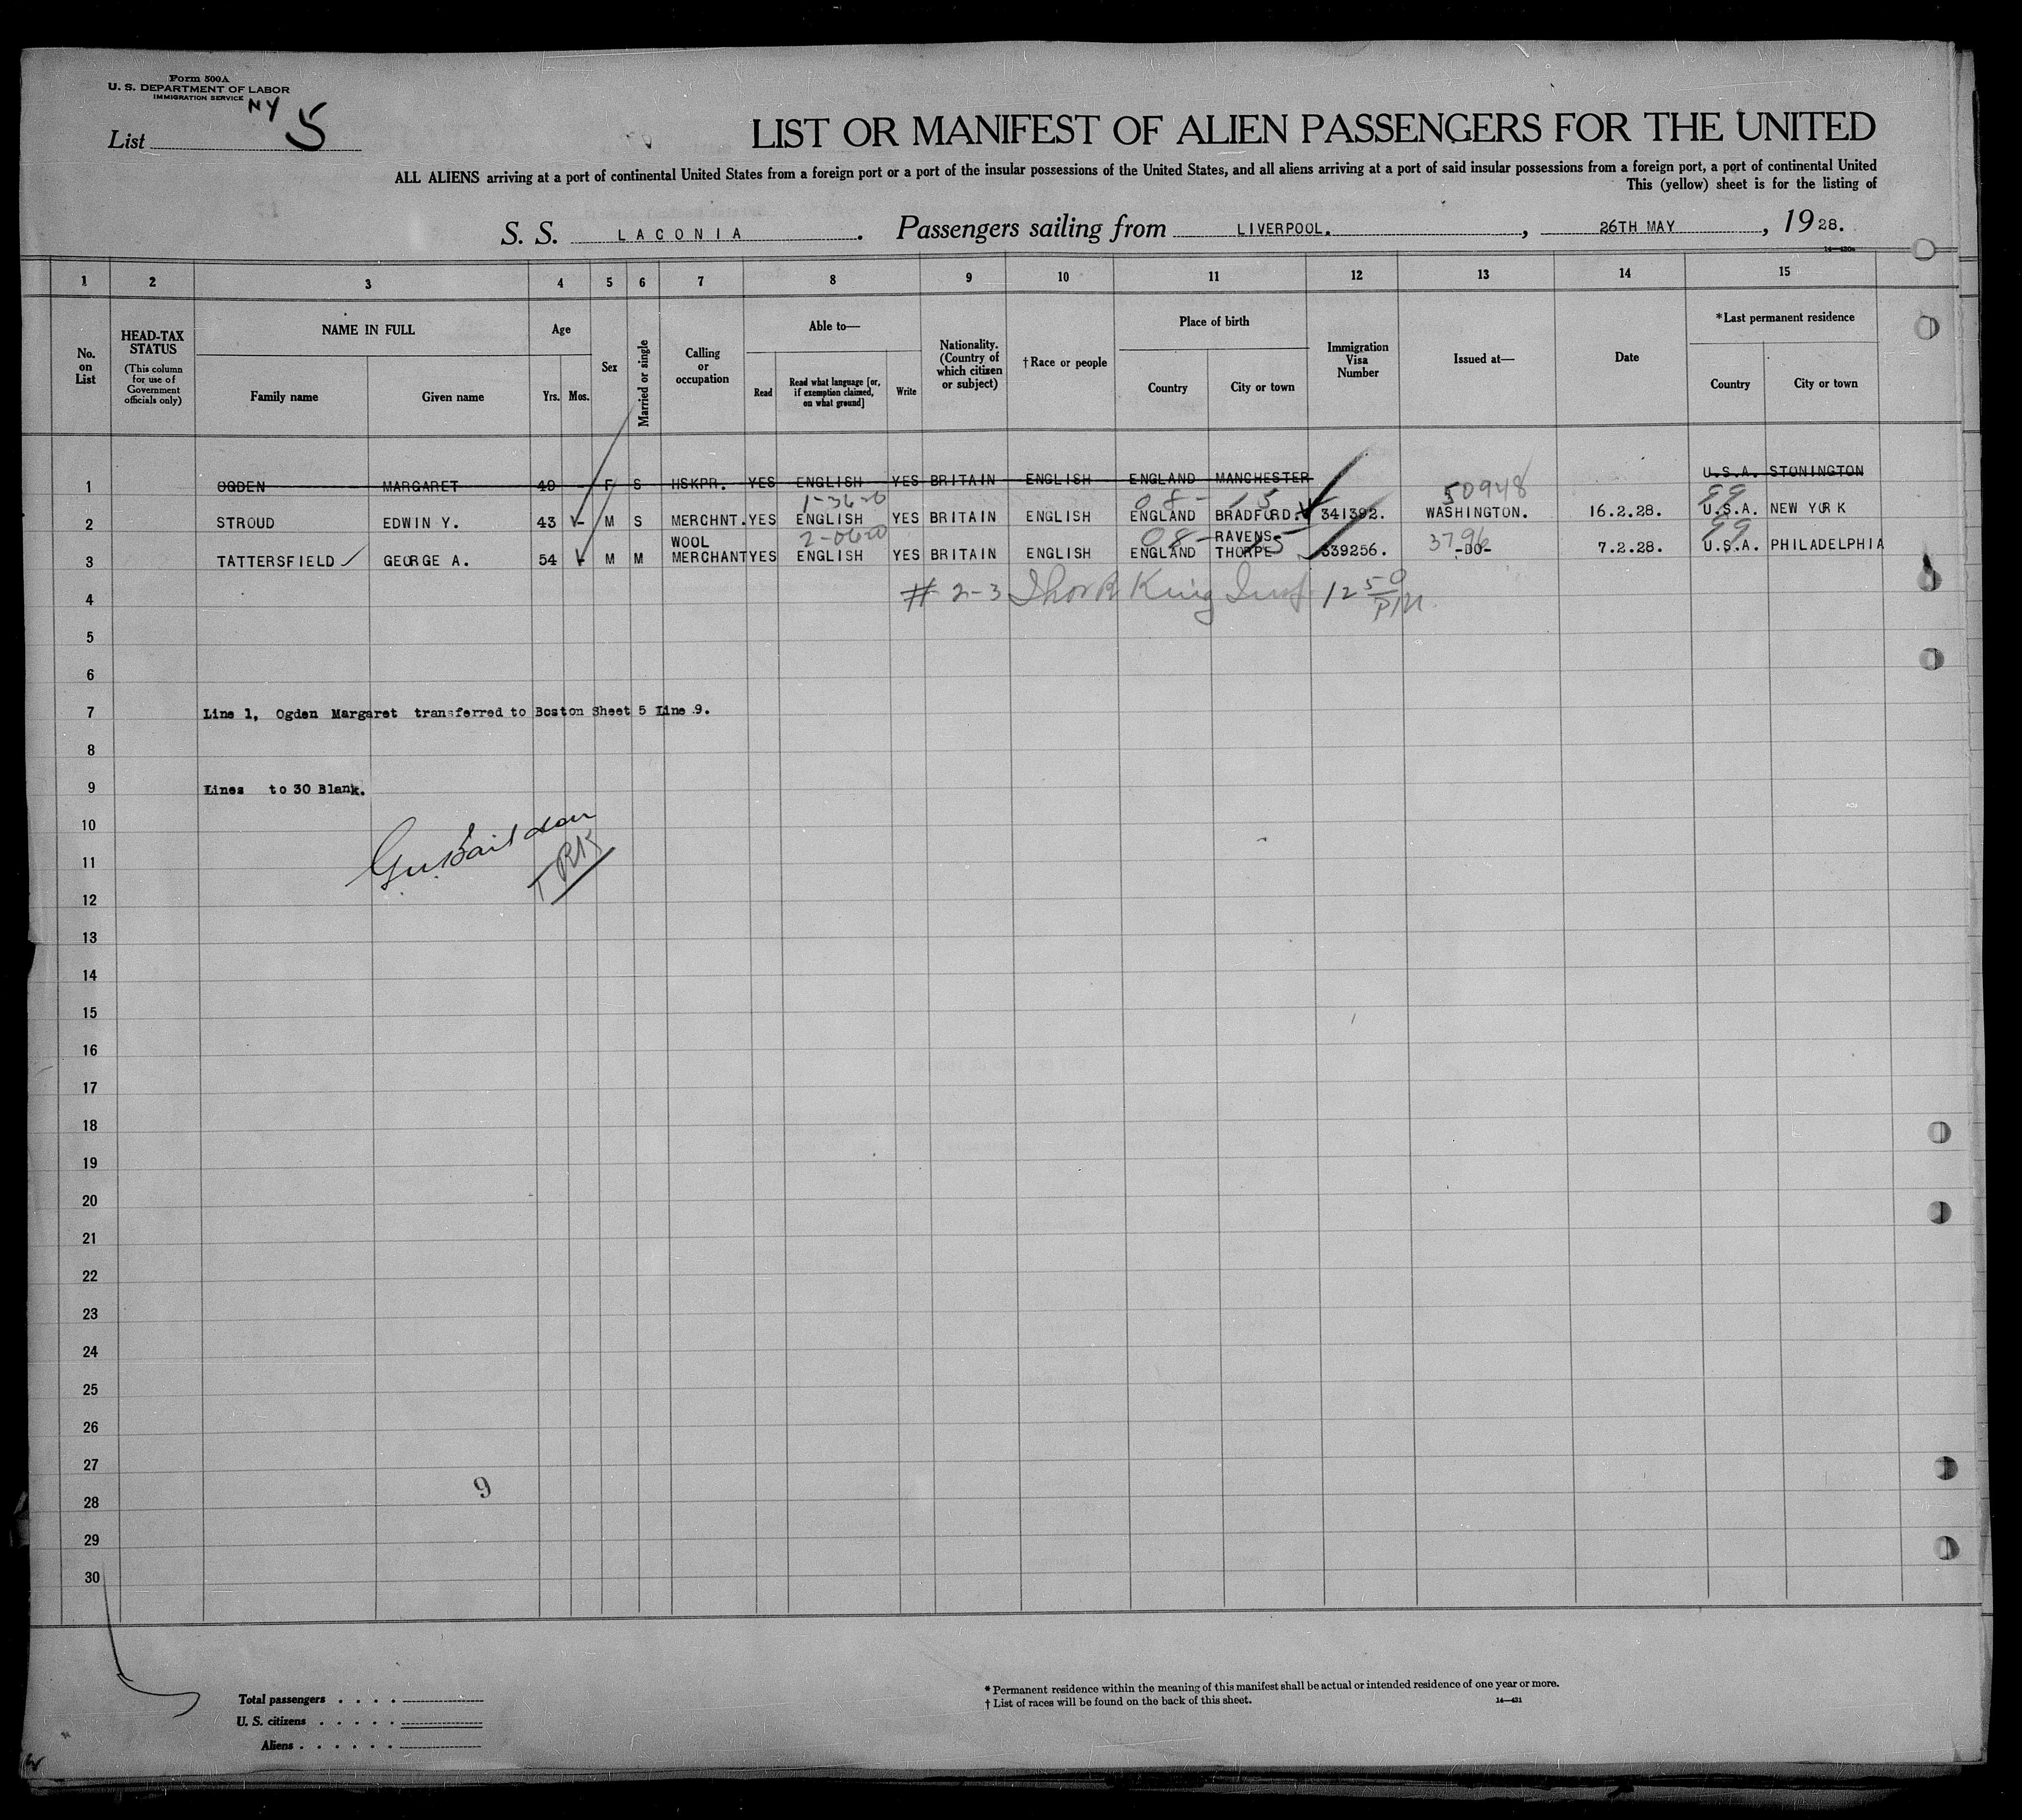 Form 500A
U. S. DEPARTMENT OF LABOR
IMMIGRATION SERVICE
NY
List 5
LIST OR MANIFEST OF ALIEN PASSENGERS FOR THE UNITED
ALL ALIENS arriving at a port of continental United States from a foreign port or a port of the insular possessions of the United States, and all aliens arriving at a port of said insular possessions from a foreign port, a port of continental United
This (yellow) sheet is for the listing of
S. S. LACONIA. Passengers sailing from LIVERPOOL., 26TH MAY, 1928.
14—420a
1 2 3 4 5 6 7 8 9 10 11 12 13 14 15
No. on List
HEAD-TAX STATUS
(This column for use of Government officials only)
NAME IN FULL
Family name
Given name
Age
Yrs. Mos.
Sex
Married or single
Calling or occupation
Able to—
Read
Read what language [or, if exemption claimed, on what ground]
Write
Nationality. (Country of which citizen or subject)
†Race or people
Place of birth
Country
City or town
Immigration Visa Number
Issued at—
Date
*Last permanent residence
Country
City or town
1 OGDEN MARGARET 49 - F S HSKPR. YES ENGLISH YES BRITAIN ENGLISH ENGLAND MANCHESTER U.S.A. STONINGTON
08- 15 50948 99
2 STROUD EDWIN Y. 43 - M S MERCHNT. YES ENGLISH YES BRITAIN ENGLISH ENGLAND BRADFORD. 341392. WASHINGTON. 16.2.28. U.S.A. NEW YORK
08- 15 3796 99
3 TATTERSFIELD GEORGE A. 54 M M WOOL MERCHANT YES ENGLISH YES BRITAIN ENGLISH ENGLAND RAVENSTHORPE 339256. -DO- 7.2.28. U.S.A. PHILADELPHIA
4 # 2-3 Thor R King Insp. 12 50 PM.
5
6
7 Line 1, Ogden Margaret transferred to Boston Sheet 5 Line 9.
8
9 Lines to 30 Blank.
10
11
TRK
12
13
14
15
16
17
18
19
20
21
22
23
24
25
26
27
9
28
29
30
Total passengers . . . .
U. S. citizens . . . . .
Aliens . . . . . .
* Permanent residence within the meaning of this manifest shall be actual or intended residence of one year or more.
† List of races will be found on the back of this sheet.
14—421